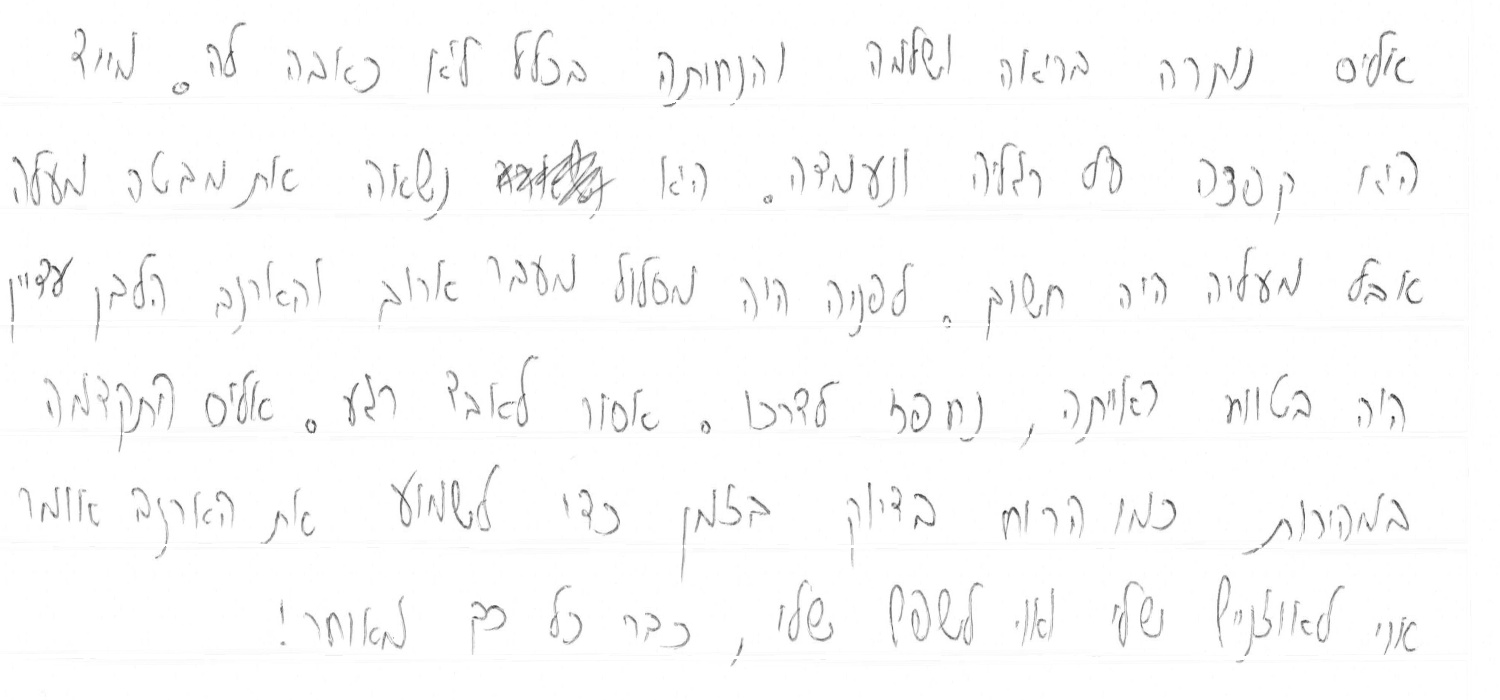 אליס נותרה בריאה ושלמה והנחיתה בכלל לא כאבה לה. מייד
היא קפצה על רגליה ונעמדה. היא נשאה את מבטה מעלה
אבל מעליה היה חשוך. לפניה היה מסלול מעבר ארוך והארנב הלבן עדיין
היה בטווח ראייתה, נחפז לדרכו. אסור לאבד רגע. אליס התקדמה
במהירות כמו הרוח בדיוק בזמן כדי לשמוע את הארנב אומר
אוי לאוזניים שלי ואוי לשפם שלי, כבר כל כך מאוחר!